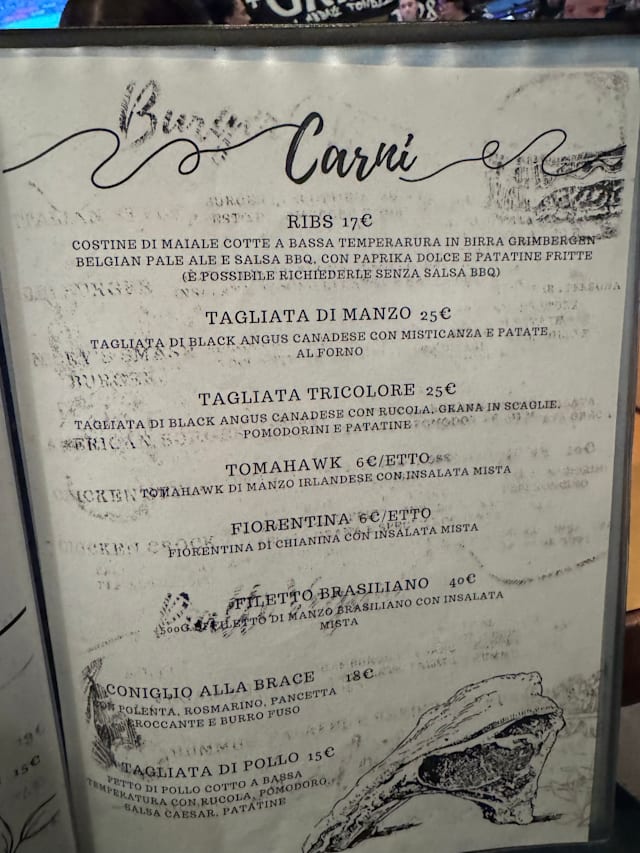 Carni
RIBS 17€
COSTINE DI MAIALE COTTE A BASSA TEMPERARURA IN BIRRA GRIMBERGEN
BELGIAN PALE ALE E SALSA BBQ, CON PAPRIKA DOLCE E PATATINE FRITTE
(È POSSIBILE RICHIEDERLE SENZA SALSA BBQ)
TAGLIATA DI MANZO 25€
TAGLIATA DI BLACK ANGUS CANADESE CON MISTICANZA E PATATE
AL FORNO
TAGLIATA TRICOLORE 25€
TAGLIATA DI BLACK ANGUS CANADESE CON RUCOLA, GRANA IN SCAGLIE,
POMODORINI E PATATINE
TOMAHAWK 6€/ETTO
TOMAHAWK DI MANZO IRLANDESE CON INSALATA MISTA
FIORENTINA 6€/ETTO
FIORENTINA DI CHIANINA CON INSALATA MISTA
FILETTO BRASILIANO 40€
500G DI FILETTO DI MANZO BRASILIANO CON INSALATA
MISTA
CONIGLIO ALLA BRACE 18€
POLENTA, ROSMARINO, PANCETTA
CROCCANTE E BURRO FUSO
TAGLIATA DI POLLO 15€
PETTO DI POLLO COTTO A BASSA
TEMPERATURA CON RUCOLA, POMODORO,
SALSA CAESAR, PATATINE
15€